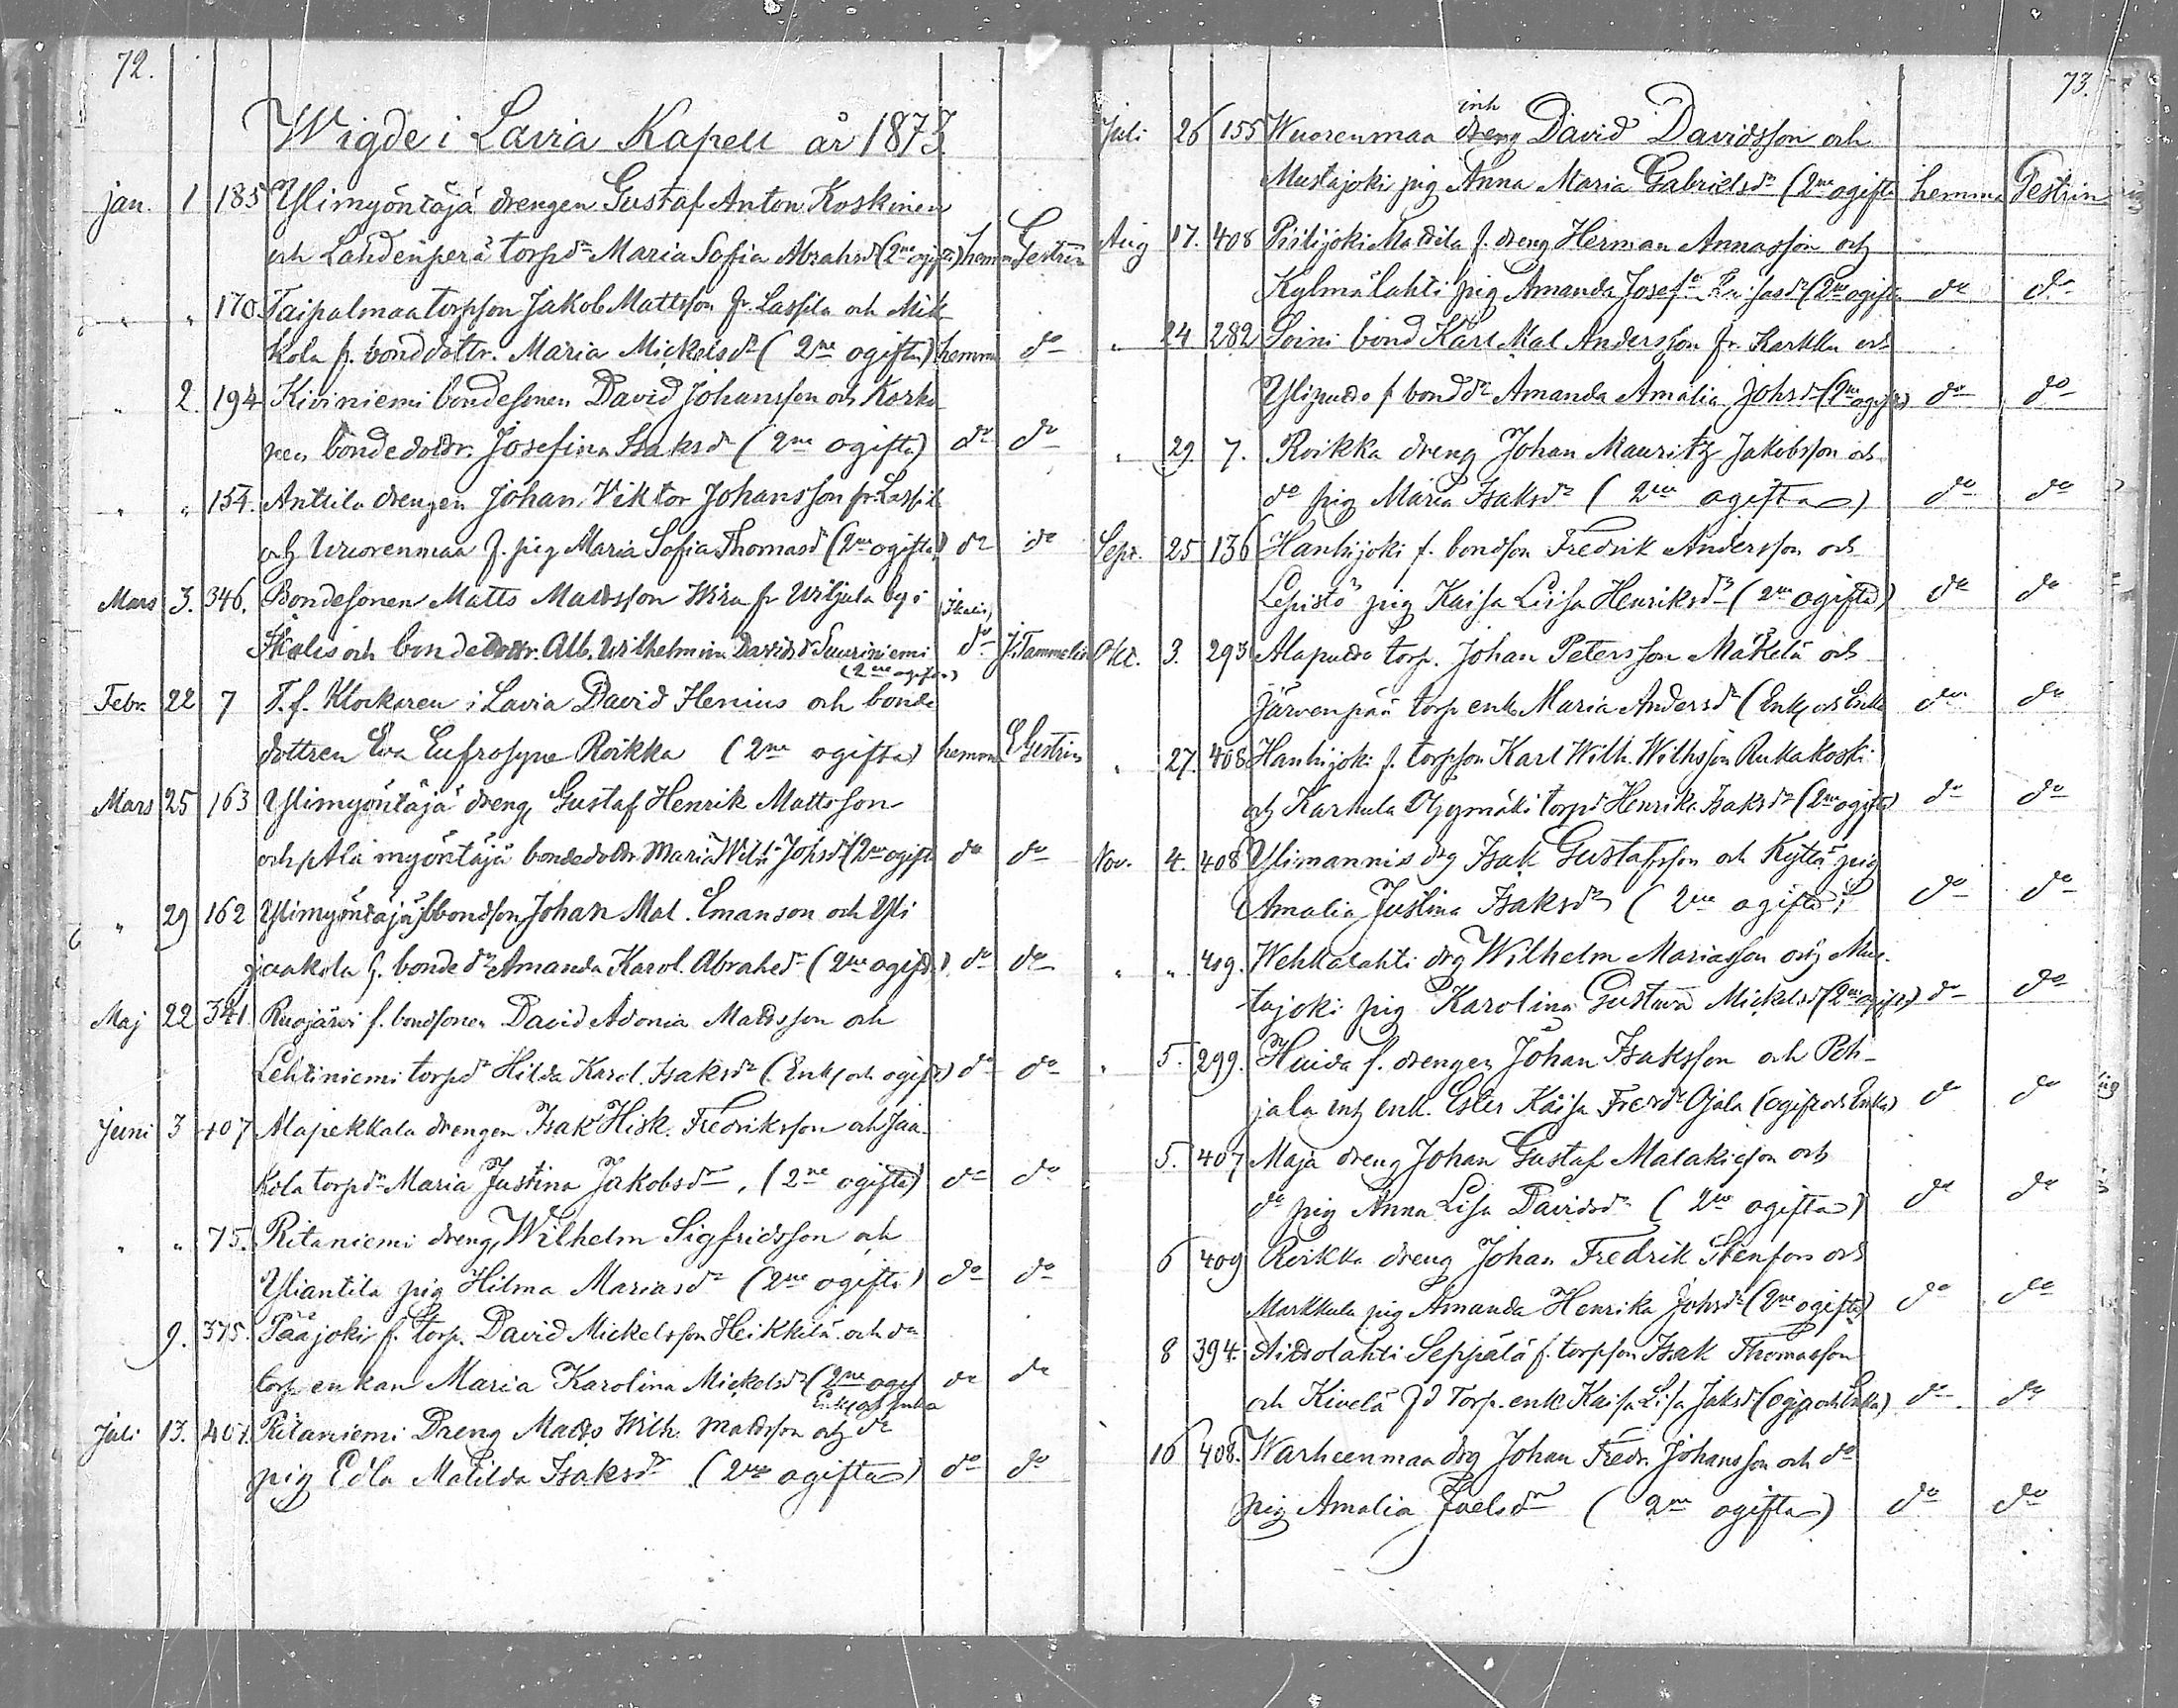 72.
Wigde i Lavia Kapell år 1873.
jan. 1 185 Ylimyöntäjä drengen Gustaf Anton Koskinen
och Lahdenperä torpdr Maria Sofia Abrahsdr (2ne ogifta) hemma Gestrin
" " 170. Taipalmaa torpson Jakob Mattsson fr. Lassila och Mik
kola f. bonddottr. Maria Mickelsdr (2ne ogifta) hemma do
" 2. 194 Kiviniemi bondesonen David Johansson och Korho
nen bondedottr. Josefina Isaksdr (2ne ogifta) do do
" " 154. Anttila drengen Johan Viktor Johansson fr. Lassila
och Wuorenmaa f. pig Maria Sofia Thomasdr (2ne ogifta) do do
Mars 3. 346. Bondesonen Matts Mattsson Wira fr Wiljala by i (Ikalis)
Ikalis och bondedottr. Alb. Wilhelmina Davidsdr Suuriniemi do J. Tammelin
(2ne ogifta)
Febr. 22 7 T. f. Klockaren i Lavia David Henius och bonde
dottren Eva Eufrosyne Roikka (2ne ogifta) hemma E Gestrin
Mars 25 163 Ylimyöntäjä dreng Gustaf Henrik Mattsson
och Ala myöntäjä bondedottr. Maria Wilh. Johsdr (2ne ogifta do do
" 29 162 Ylimyöntäjä bondson Johan Mal. Emanson och Yli
jaakola f. bonde dr Amanda Karol. Abrahsdr (2ne ogifta). do do
Maj 22 341. Ruojärvi f. bondsonen David Adonia Mattsson och
Lehtiniemi torpdr Hilda Karol. Isaksdr (Enkl och ogift) do do
Juni 3 407 Alapekkala drengen Isak Hisk. Fredriksson och Jaa
kola torpdr Maria Justina Jakobsdr. (2ne ogifta) do do
" " 75. Ritaniemi dreng Wilhelm Sigfridsson och
Yliantila pig Hilma Mariasdr (2ne ogifta) do do
9. 375. Pääjoki f. torp. David Mickelsson Heikkilä och do
torp enkan Maria Karolina Mickelsdr (2ne ogif do do
Enkl och Enka
Juli 13. 401. Ritaniemi Dreng Matts Wilh. Mattsson och do
pig Edla Matilda Isaksdr (2ne ogifta) do do
73.
inh
Juli 26 155 Wuorenmaa dreng David Davidsson och
Mustajoki pig Anna Maria Gabrielsdr (2ne ogifta hemma Gestrin
Aug 17. 408 Piilijoki Mattila f. dreng Herman Annasson och
Kylmälahti pig Amanda Josefa (2ne ogifta do do
" 24 282 Soini bond Karl Mal Andersson fr. Karkku och
Yliputto f bonddr Amanda Amalia Johsdr (2ne ogifta) do do
" 29. 7. Roikka dreng Johan Mauritz Jakobsson och
do pig Maria Isaksdr (2ne ogifta) do do
Sept. 25 136 Hanhijoki f. bondson Fredrik Andersson och
Lepistö pig Kaisa Lisa Henriksdr (2ne ogifta) do do
Okt. 3. 293 Alaputto torp. Johan Petersson Mäkelä och
Järvenpää torp enk. Maria Andersdr (Enkl och Enka do do
" 27. 408 Hanhijoki f. torpson Karl Wilh. Wilhsson Rukakoski
och Karhula Öygmäki torpdr Henrika Isaksdr (2ne ogifta) do do
Nov. 4. 408 Ylimannis drg Isak Gustafsson och Kyttä pig
Amalia Justina Isaksdr (2ne ogifta) do do
" " 419. Wehkalahti drg Wilhelm Mariasson och Mus-
tajoki pig Karolina Gustava Mickelsdr (2ne ogifta) do do
" 5. 299. Huida f. drengen Johan Isaksson och Poh-
jala inh enk. Ester Kaisa Fredr Ojala (ogift och Enka) do do
5. 407 Maja dreng Johan Gustaf Malakisson och
do pig Anna Lisa Davidsdr (2ne ogifta) do do
6 409 Roikka dreng Johan Fredrik Stenfors och
Markkula pig Amanda Henrika Johsdr (2ne ogifta) do do
8 394. Aittolahti Seppälä f. torpson Isak Thomasson
och Kivelä fd torp. enk Kaisa Lisa Jaksdr (ogift och Enka) do do
16 408. Warheenmaa drg Johan Fredr. Johansson och do
pig Amalia Joelsdr (2ne ogifta) do do